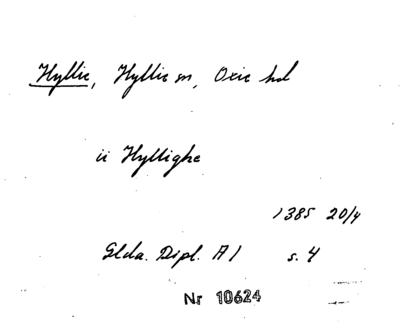 Hyllie, Hyllie sn, Oxie hd
ii Hyllighe
1385 20/4
Dipl. A I s. 4
Nr 10624